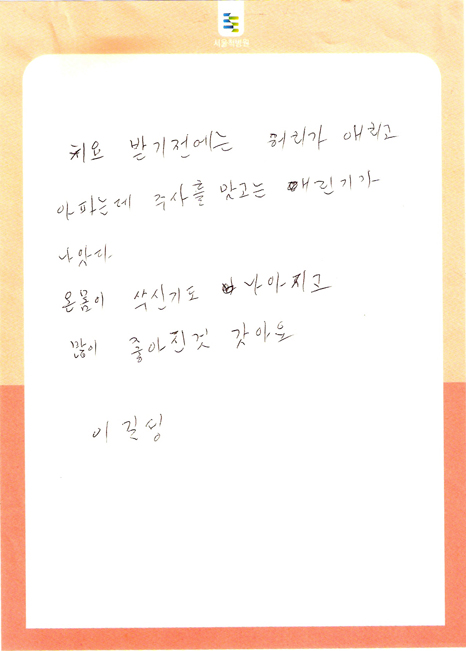 치요 받기전에는 허리가 애리고
아파는데 주사를 맞고는 애린기가
나앗다
온몸이 쑥신기도 나아지고
많이 좋아진것 갓아요
이길성